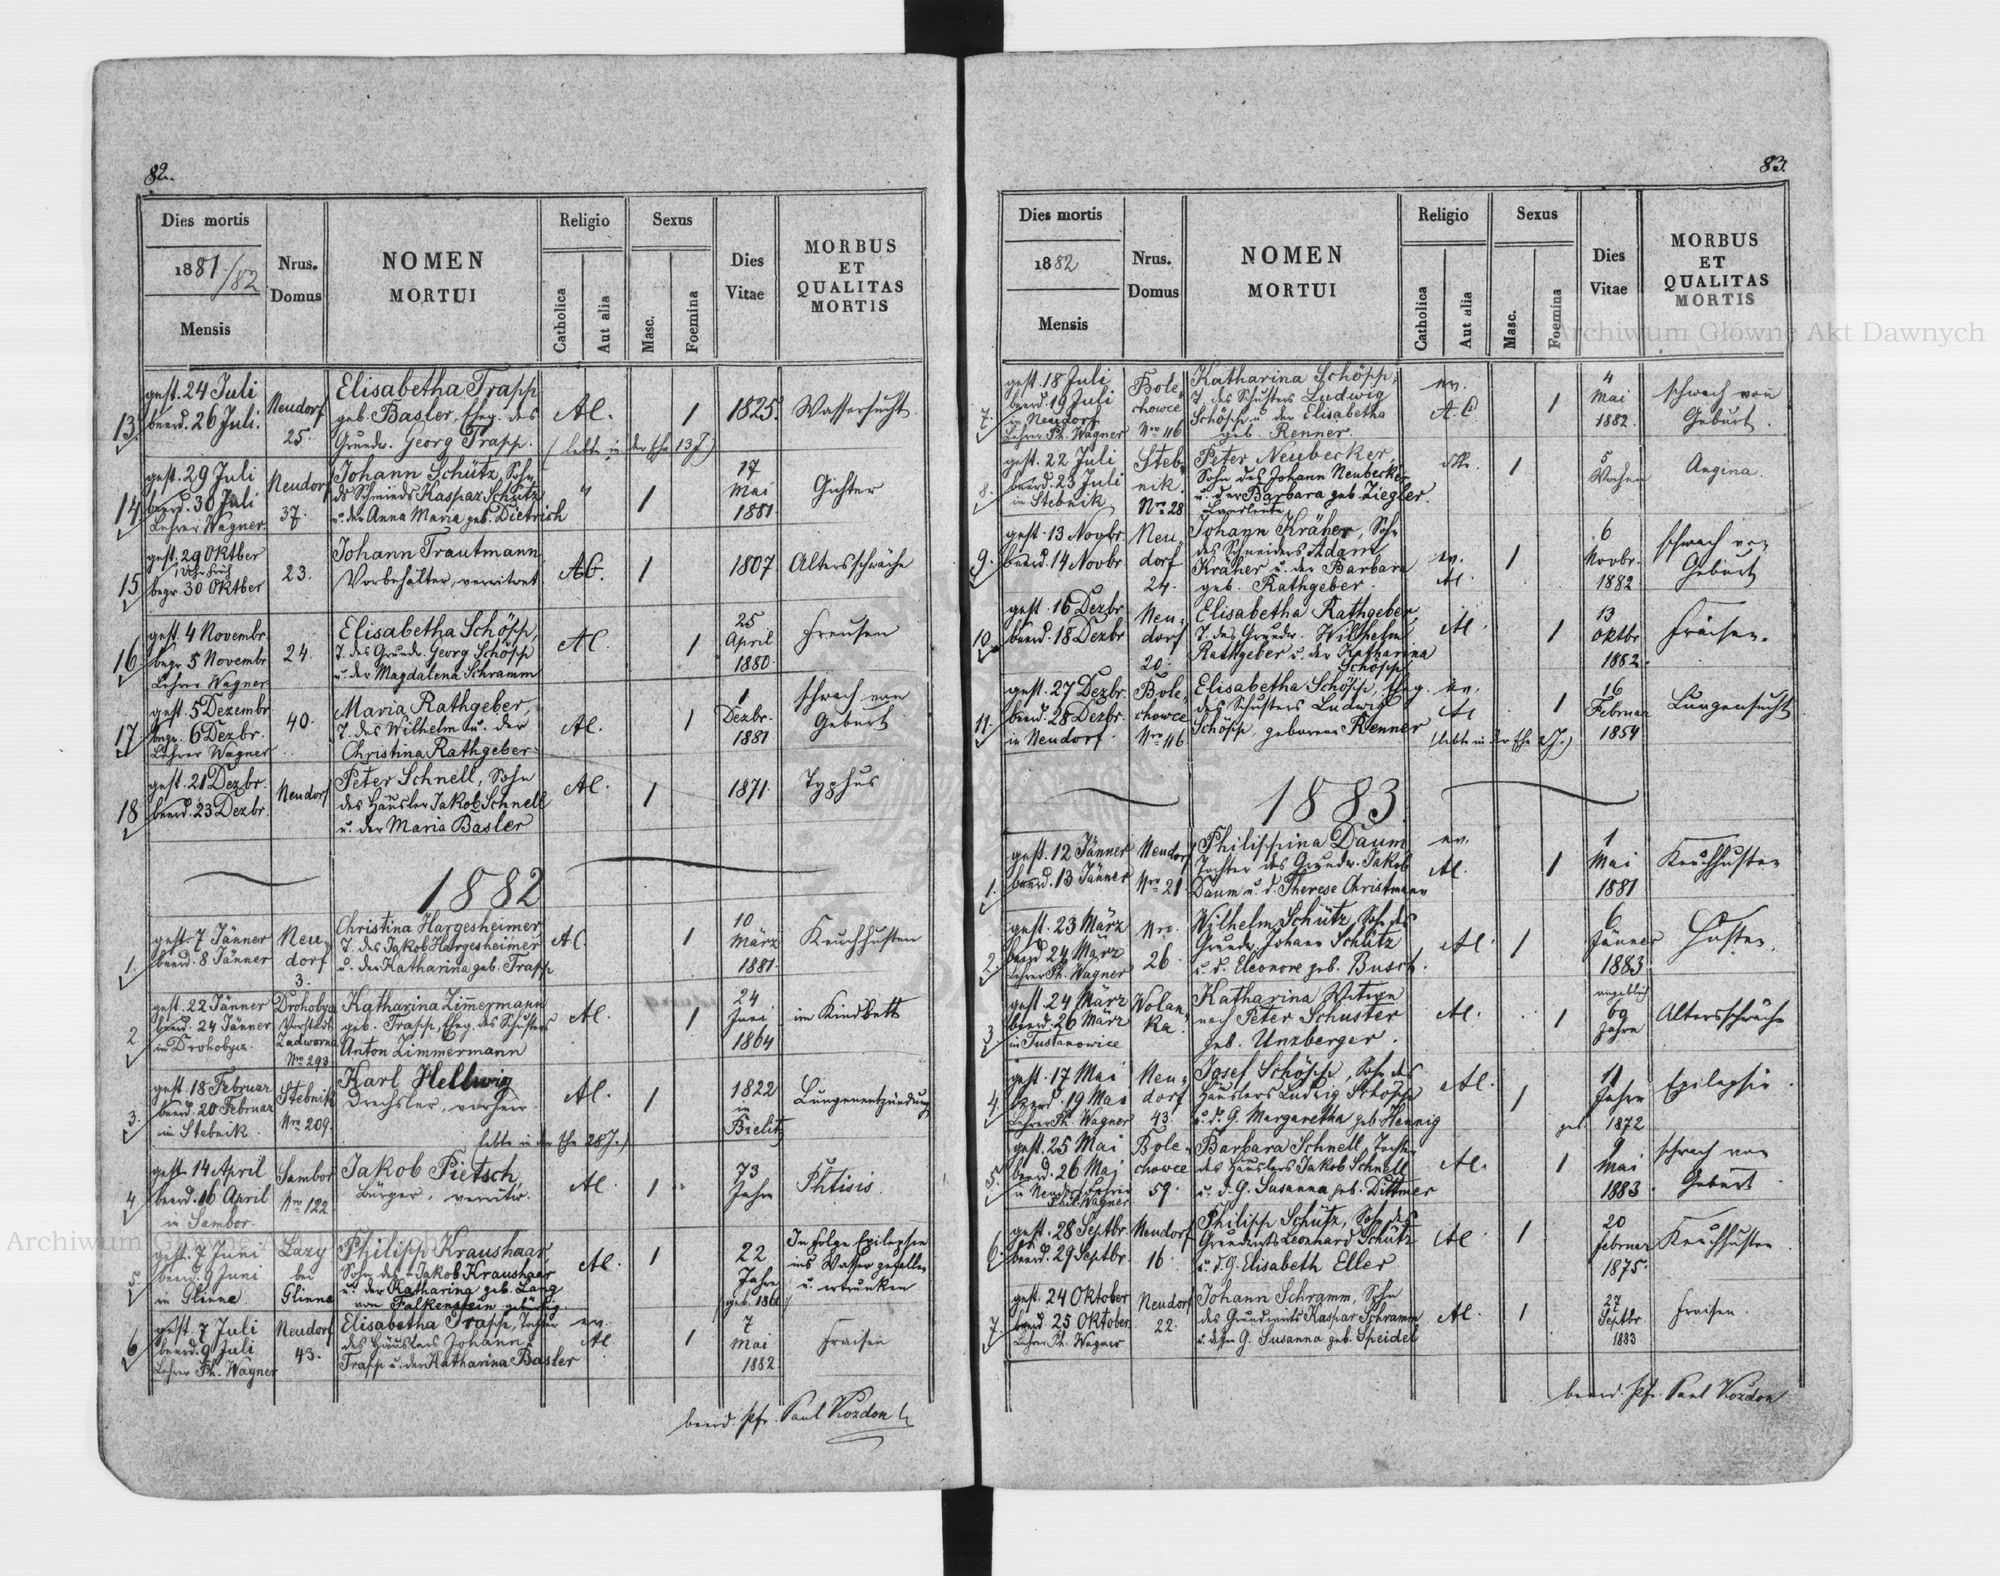 82.
Dies mortis
1881/82
Mensis
Nrus.
Domus
NOMEN
MORTUI
Religio
Catholica
Aut alia
Sexus
Masc.
Foemina
Dies
Vitae
MORBUS
ET
QUALITAS
MORTIS
13.
gest. 24 Juli
beerd. 26 Juli.
Neudorf
25.
Elisabetha Trapp
geb. Basler, Eheg. des
Grundw. Georg Trapp.
(lebte in der Ehe 13 J)
AC.
1
1825.
Wassersucht
14
gest. 29 Juli
beerd. 30 Juli
Lehrer Wagner
Neudorf
37.
Johann Schütz, Sohn
ds Schmieds Kaspar Schütz
u. der Anna Maria geb. Dietrich
"
1
17
Mai
1881
Gichter
15
gest. 29 Oktber
1 Uhr früh
begr. 30 Oktber
23.
Johann Trautmann
Vorbehälter, verwitwet
AC.
1
1807
Altersschwäche
16
gest. 4 Novembr.
begr 5 Novembr
Lehrer Wagner
24.
Elisabetha Schöpp,
T. des Grundw. Georg Schöpp
u. der Magdalena Schramm
AC.
1
25
April
1880.
Freusen
17
gest. 5 Dezembr
begr. 6 Dezbr.
Lehrer Wagner
40.
Maria Rathgeber,
T. des Wilhelm u. der
Christina Rathgeber
AC.
1
1
Dezbr.
1881
schwach von
Geburt
18
gest. 21 Dezbr.
beerd. 23 Dezbr.
Neudorf
Peter Schnell, Sohn
des Häusler Jakob Schnell
u. der Maria Basler
AC.
1
1871.
Typhus
1882
1.
gest. 7 Jänner
beerd. 8 Jänner
Neu-
dorf
3.
Christina Hargesheimer
T. des Jakob Hargesheimer
u. der Katharina geb. Trapp
AC
1
10
März
1881.
Keuchhusten
2
gest. 22 Jänner
beerd. 24 Jänner
in Drohobycz.
Drohobycz
Vorstadt
Zadworna
Nro 293
Katharina Zimmermann
geb. Trapp, Eheg. des Schusters
Anton Zimmermann
AC.
1
24
Juni
1864
im Kindbett
3.
gest. 18 Februar
beerd. 20 Februar
in Stebnik.
Stebnik
Nro 209.
Karl Hellwig
Drechsler, verheir.
lebte in der Ehe 28 J.)
AC.
1
1822
in
Bielitz
Lungenentzündung
4
gest. 14 April
beerd. 16 April
in Sambor.
Sambor
Nro 122
Jakob Pietsch,
Bürger, verwitw.
AC.
1
73
Jahre
Phtisis.
5.
gest. 7 Juni
beerd. 9 Juni
in Glinne
Lazy
bei
Glinne
Philipp Kraushaar
Sohn des Jakob Kraushaar
u. der Katharina geb. Lang
von Falkenstein gebürtig.
AC.
1
22
Jahre
geb. 1860
In Folge Epilepsie
ins Wasser gefallen
u. ertrunken
6
gest. 7 Juli
beerd. 9 Juli
Lehrer Ph. Wagner
Neudorf
43.
Elisabetha Trapp, Tochter
des Häuslers Johann
Trapp u. der Katharina Basler
ev.
AC.
1
7
Mai
1882
Fraisen
beerd. Pfr. Paul Kozdon
83.
Dies mortis
1882
Mensis
Nrus.
Domus
NOMEN
MORTUI
Religio
Catholica
Aut alia
Sexus
Masc.
Foemina
Dies
Vitae
MORBUS
ET
QUALITAS
MORTIS
7.
gest. 18 Juli
beerd. 19 Juli
in Neudorf
Lehrer Ph. Wagner
Bole-
chowce
Nro 116
Katharina Schöpp,
T. des Schusters Ludwig
Schöpp u. der Elisabetha
geb. Renner.
ev.
A.C
1
4
Mai
1882.
schwach von
Geburt.
8.
gest. 22 Juli
beerd. 23 Juli
in Stebnik
Steb-
nik
Nro 28
Peter Neubecker,
Sohn des Johann Neubecker
u. der Barbara geb. Ziegler.
Landleute
1
5
Wochen
Angina.
9.
gest. 13 Novbr.
beerd. 14 Novbr
Neu-
dorf
24.
Johann Kräher, Sohn
des Schneiders Adam
Kräher u. der Barbara
geb. Rathgeber.
ev.
AC.
1
6
Novbr.
1882.
schwach von
Geburt
10.
gest. 16 Dezbr.
beerd. 18 Dezbr
Neu-
dorf
20.
Elisabetha Rathgeber
T. des Grundw. Wilhelm
Rathgeber u. der Katharina
Schöpp
AC.
1
13
Oktbr
1882.
Fraisen.
11.
gest. 27 Dezbr.
beerd. 28 Dezbr.
in Neudorf.
Bole-
chowce
Nro 116
Elisabetha Schöpp, Eheg.
des Schusters Ludwig
Schöpp, geborene Renner
(lebte in der Ehe 2 J.)
ev.
AC
1
16
Februar
1854
Lungensucht
1883.
1.
gest. 12 Jänner
beerd. 13 Jänner
Neudorf
Nro 21
Philippina Daum
Tochter des Grundw. Jakob
Daum u. d. Therese Christmann
ev.
AC.
1
1
Mai
1881
Keuchhusten
2
gest. 23 März
beerd 24 März
Lehrer Ph. Wagner
Nro.
26.
Wilhelm Schütz, Sohn des
Grundw. Johann Schütz
u. d. Eleonore geb. Busch.
AC.
1
6
Jänner
1883
Husten.
3
gest. 24 März
beerd. 26 März
in Tustanowice
Wolan-
ka.
Katharina Witwe
nach Peter Schuster
geb. Unzberger.
AC.
1
angeblich
69
Jahre
Altersschwäche
4.
gest. 17 Mai
beerd. 19 Mai
Lehrer Ph. Wagner
Neu-
dorf
43.
Josef Schöpp, Sohn des
Häuslers Ludwig Schöpp
u. d. G. Margaretha geb Hennig
AC.
1
11
Jahre
geb 1872
Epilepsie.
5.
gest. 25 Mai
beerd. 26 Mai
in Neudorf Lehrer
Phil. Wagner
Bole-
chowce
59.
Barbara Schnell, Tochter
des Häuslers Jakob Schnell
u. d. G. Susanna geb. Dittmer
AC.
1
9
Mai
1883.
schwach von
Geburt.
6.
gest. 28 Septbr.
beerd. 29 Septbr.
Neudorf
16.
Philipp Schütz, Sohn des
Grundwirts Leonhard Schütz
u. d. G. Elisabeth Eller
AC
1
20
Februar
1875.
Keuchhusten.
7
gest. 24 Oktober
beerd 25 Oktober
Lehrer Ph. Wagner
Neudorf
22.
Johann Schramm, Sohn
des Grundwirts Kaspar Schramm
u. dessen G. Susanna geb. Speidel
AC.
1
27
Septbr
1883
Fraisen.
beerd. Pfr. Paul Kozdon
Archiwum Główne Akt Dawnych
Archiwum Główne Akt Dawnych